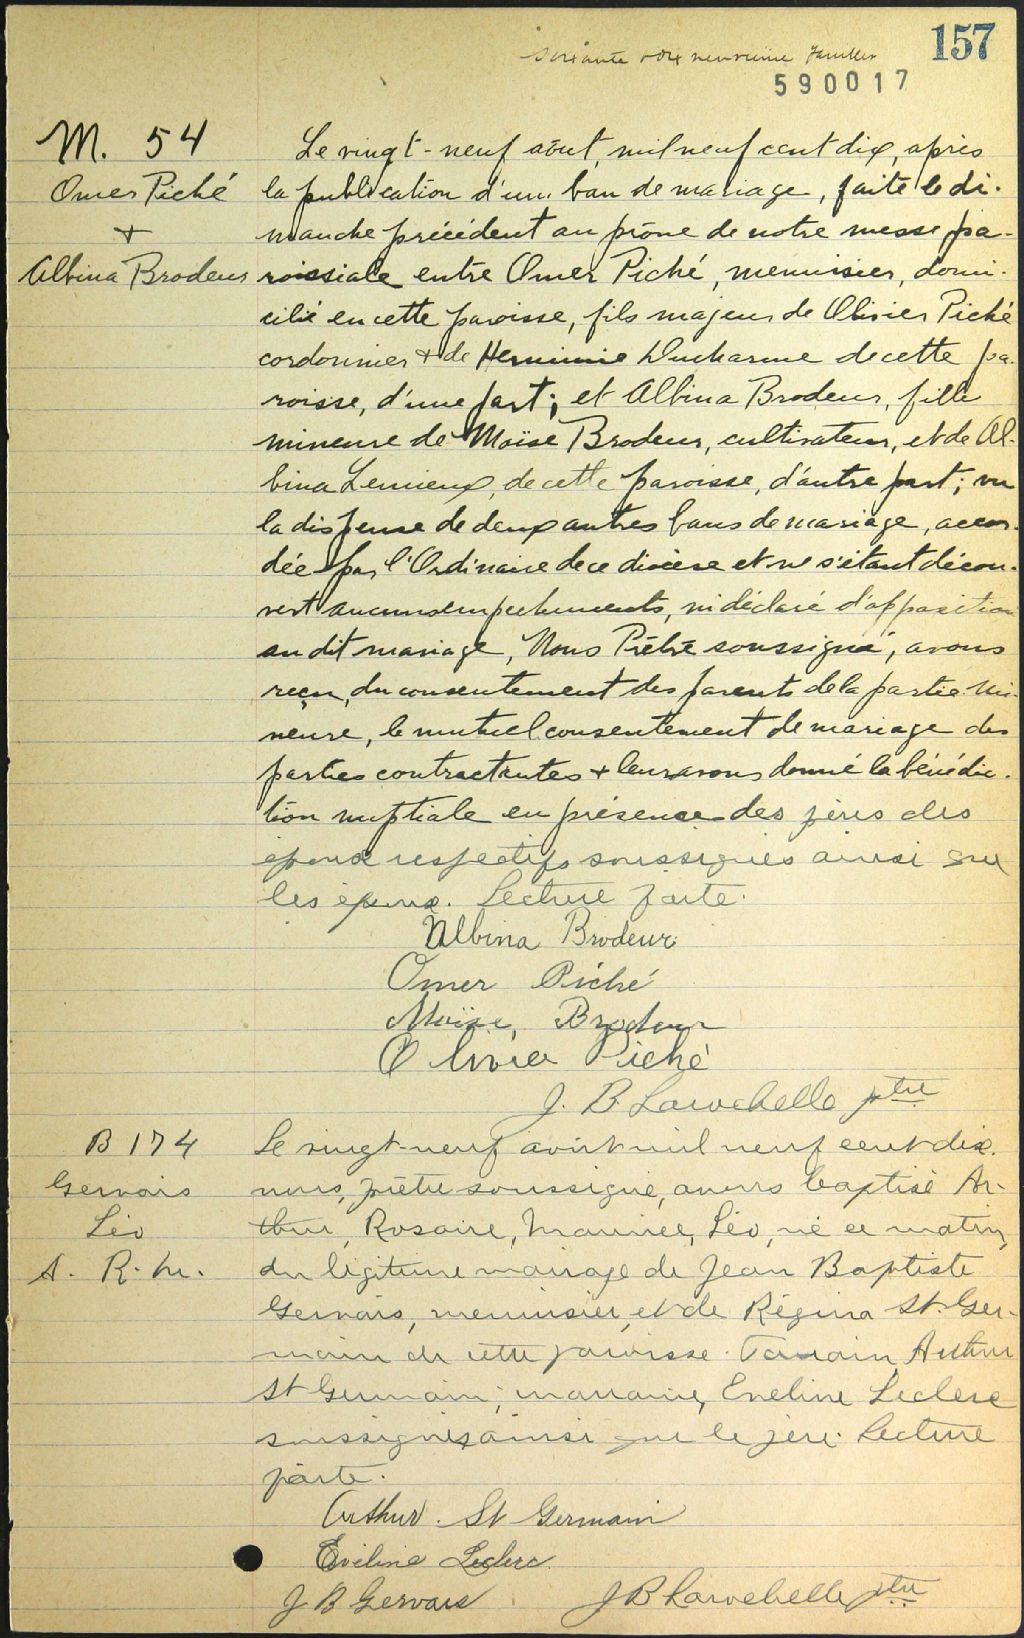 soixante dix neuvième feuillet
157
590017
M. 54
Omer Piché
+
Albina Brodeur
Le vingt-neuf août, mil neuf cent dix, après
la publication d'un ban de mariage, faite le di-
manche précédent au prône de notre messe pa-
roissiale entre Omer Piché, menuisier, domi-
cilié en cette paroisse, fils majeur de Olivier Piché
cordonnier + de Herminie Ducharme de cette pa-
roisse, d'une part; et Albina Brodeur, fille
mineure de Moïse Brodeur, cultivateur, et de Al-
bina Lemieux, de cette paroisse, d'autre part; vu
la dispense de deux autres bans de mariage, accor-
dée par l'Ordinaire de ce diocèse et ne s'étant décou-
vert aucuns empechements, ni déclaré d'opposition
au dit mariage, Nous Prêtre soussigné, avons
reçu, du consentement des parents de la partie mi-
neure, le mutuel consentement de mariage des
parties contractantes + leur avons donné la bénédic-
tion nuptiale en présence des pères des
époux respectifs soussignés ainsi que
les époux. Lecture faite.
Albina Brodeur
Omer Piché
Moïse Brodeur
Olivier Piché
J. B. Larochelle ptre
B 174
Gervais
Léo
A. R. M.
Le vingt-neuf août mil neuf cent dix
nous, prêtre soussigné, avons baptisé Ar-
thur, Rosaire, Maurice, Léo, né ce matin,
du légitime mariage de Jean Baptiste
Gervais, menuisier, et de Régina St. Ger-
main de cette paroisse. Parrain, Arthur
St Germain; marraine, Eveline Leclerc
soussignés ainsi que le père. Lecture
faite.
Arthur. St Germain
Eveline Leclerc
J B Gervais
J B Larochelle ptre